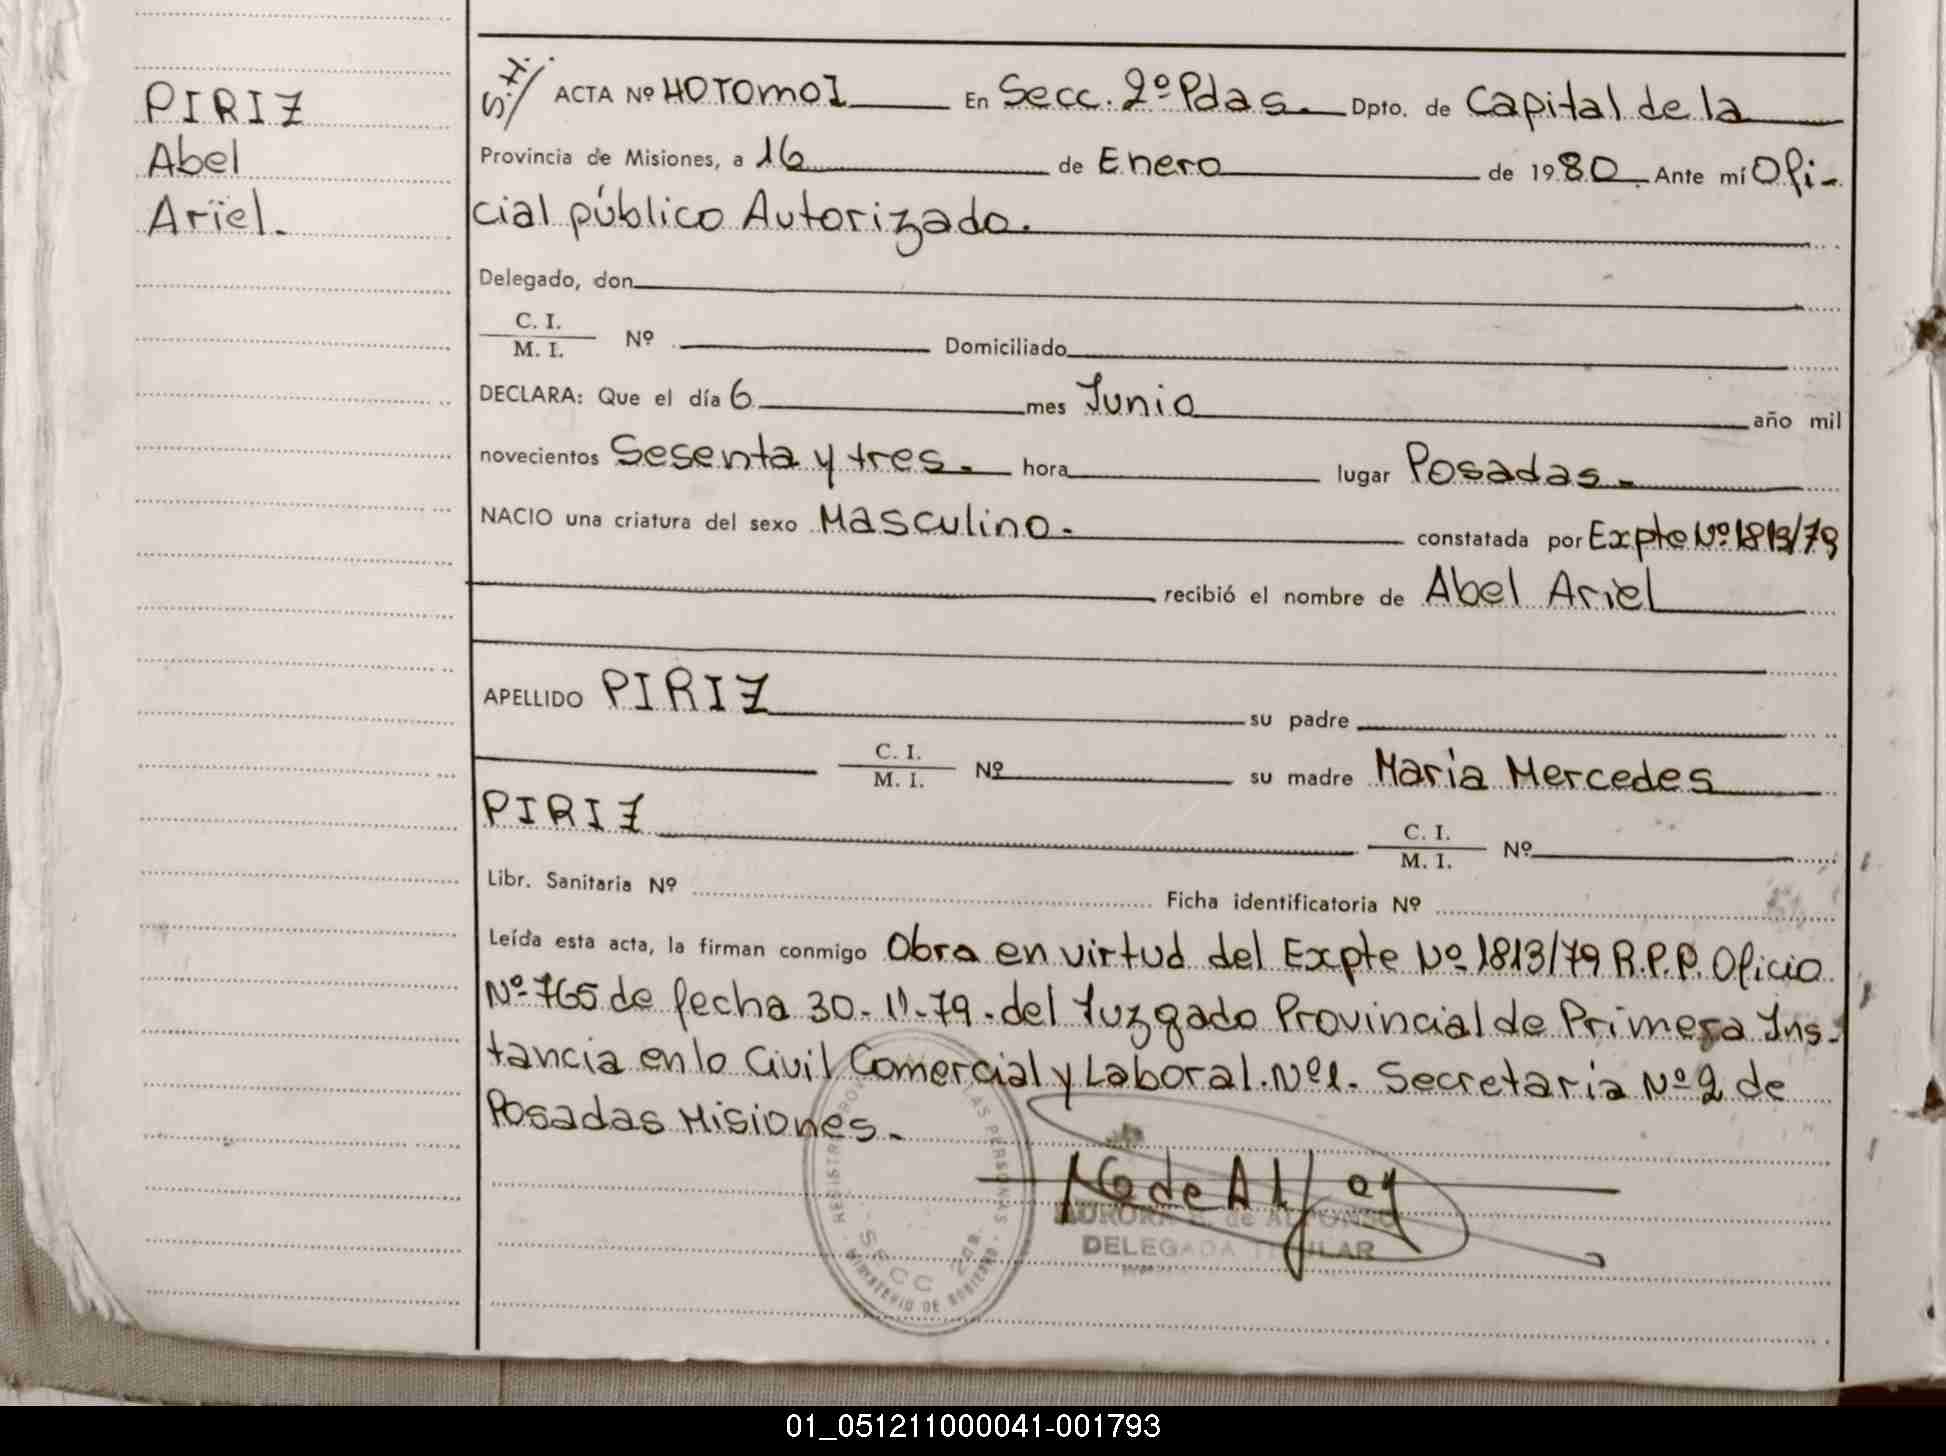 PIRIZ
Abel
Ariel.
S.H/ ACTA Nº 40TOMOI En Secc. 2º Pdas. Dpto. de Capital de la
Provincia de Misiones, a 16 de Enero de 1980. Ante mí Ofi-
cial público Autorizado.
Delegado, don
C. I.
M. I. Nº Domiciliado
DECLARA: Que el día 6 mes Junio año mil
novecientos Sesenta y tres. hora lugar Posadas.
NACIO una criatura del sexo Masculino. constatada por Expte Nº 1813/79
recibió el nombre de Abel Ariel
APELLIDO PIRIZ su padre
C. I.
M. I. Nº su madre María Mercedes
PIRIZ C. I.
M. I. Nº
Libr. Sanitaria Nº Ficha identificatoria Nº
Leída esta acta, la firman conmigo Obra en virtud del Expte Nº 1813/79 R.P.P. Oficio
Nº 765 de fecha 30-11-79. del Juzgado Provincial de Primera Ins-
tancia en lo Civil Comercial y Laboral. Nº 1. Secretaria Nº 2 de
Posadas Misiones.
AURORA de ALFONSO
DELEGADA TITULAR
REGISTRO PROV LAS PERSONAS
SECC 2DA.
MINISTERIO DE GOBIERNO
01_051211000041-001793